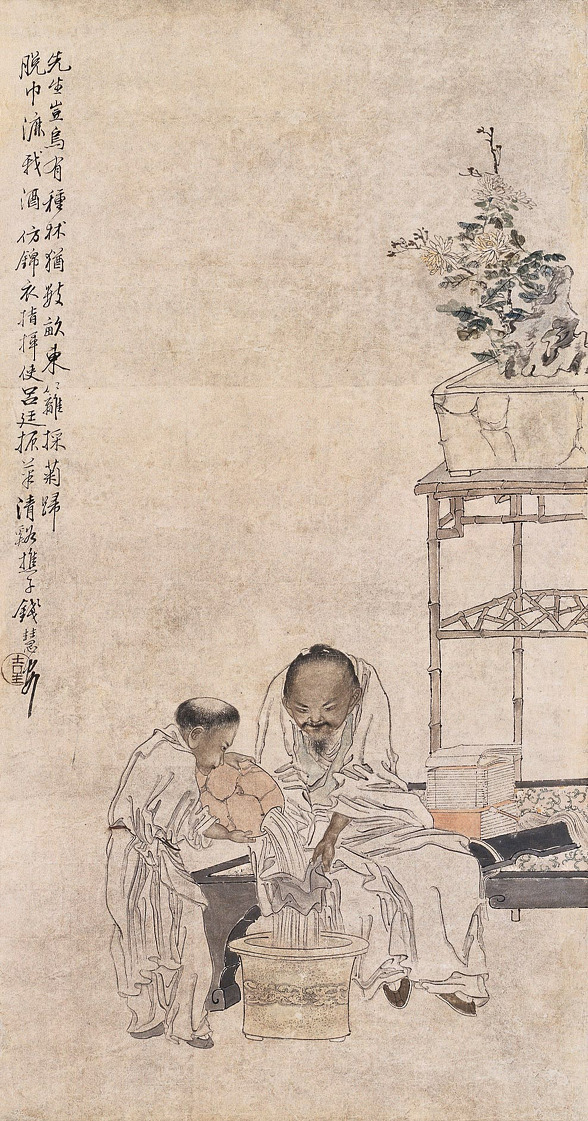 先生豈烏有種秫猶數畝東籬採菊歸
脫巾漉我酒仿錦衣指揮使呂廷振筆清谿樵子錢慧安
吉生